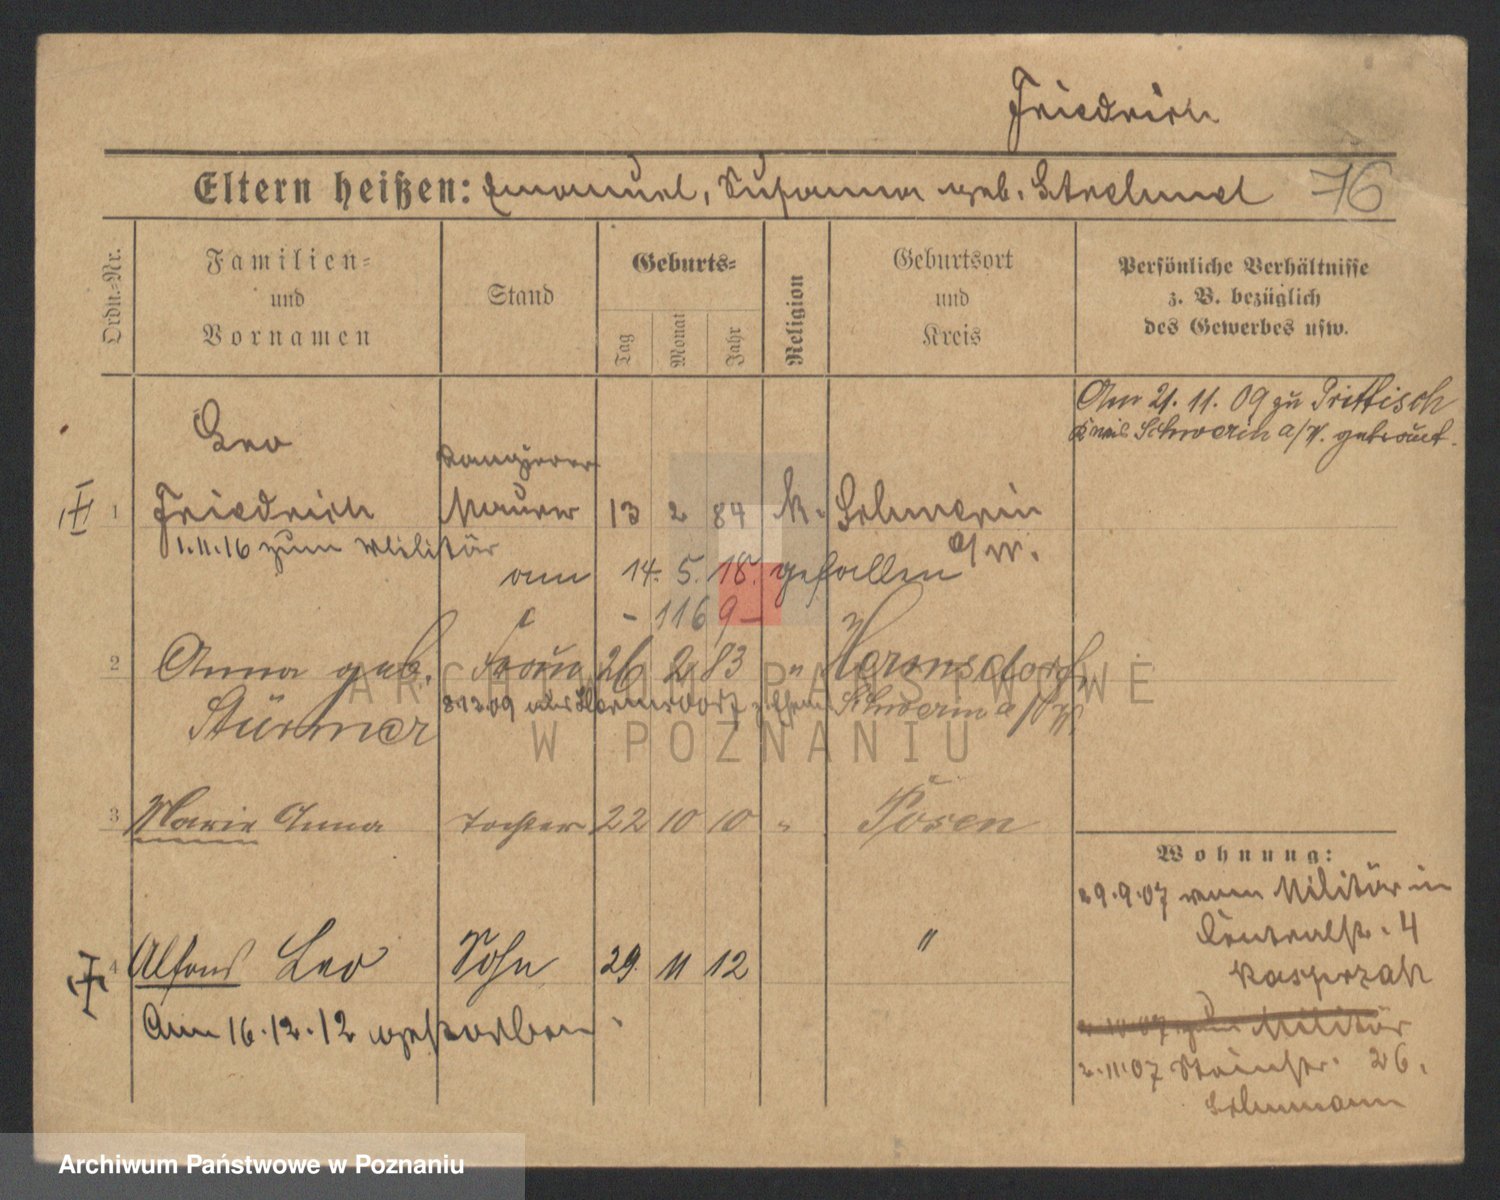 Friedrich
Eltern heißen: Emanuel, Susanna geb. 76
Ordn.-Nr.
Familien-
und
Vornamen
Stand
Geburts-
Tag
Monat
Jahr
Religion
Geburtsort
und
Kreis
Persönliche Verhältnisse
z. B. bezüglich
des Gewerbes usw.
Am 21. 11. 09 zu Prittisch
Kreis Schwerin a/W. getraut.
Leo
Rangierer
1 Friedrich Maurer 13 2 84 k. Schwerin
a/W.
1.11.16 zum Militär
am 14. 5. 18. gefallen
- 1169 -
2 Anna geb. Frau 26 2 83 " Hermsdorf,
Stürmer
8.12.09 aus Hermsdorf Schwerin a/W.
3 Marie Anna Tochter 22 10 10 " Posen
Wohnung:
29.9.07 vom Militär in
4
Kasprzak
4 Alfons Leo Sohn 29. 11 12 "
Am 16.12.12 gestorben.
zum Militär
2.11.07 26.
ARCHIWUM PAŃSTWOWE
W POZNANIU
Archiwum Państwowe w Poznaniu